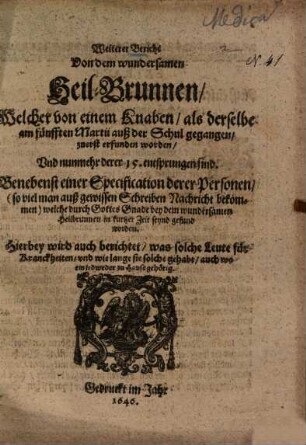 Medica
N. 41
Weiterer Bericht
Von dem wundersamen
Heil-Brunnen/
Welcher von einem Knaben/ als derselbe
am fünfften Martii auß der Schul gegangen/
zuerst erfunden worden/
Und nunmehr derer 15. entsprungen sind.
Benebenst einer Specification derer Personen/
(so viel man auß gewissen Schreiben Nachricht bekom-
men) welche durch Gottes Gnade bey dem wundersamen
Heilbrunnen in kurtzer Zeit seynd gesund
worden.
Hierbey wird auch berichtet/ was solche Leute für
Kranckheiten/ und wie lange sie solche gehabt/ auch wo
ein jedweder zu Hause gehörig.
Gedruckt im Jahr
1646.